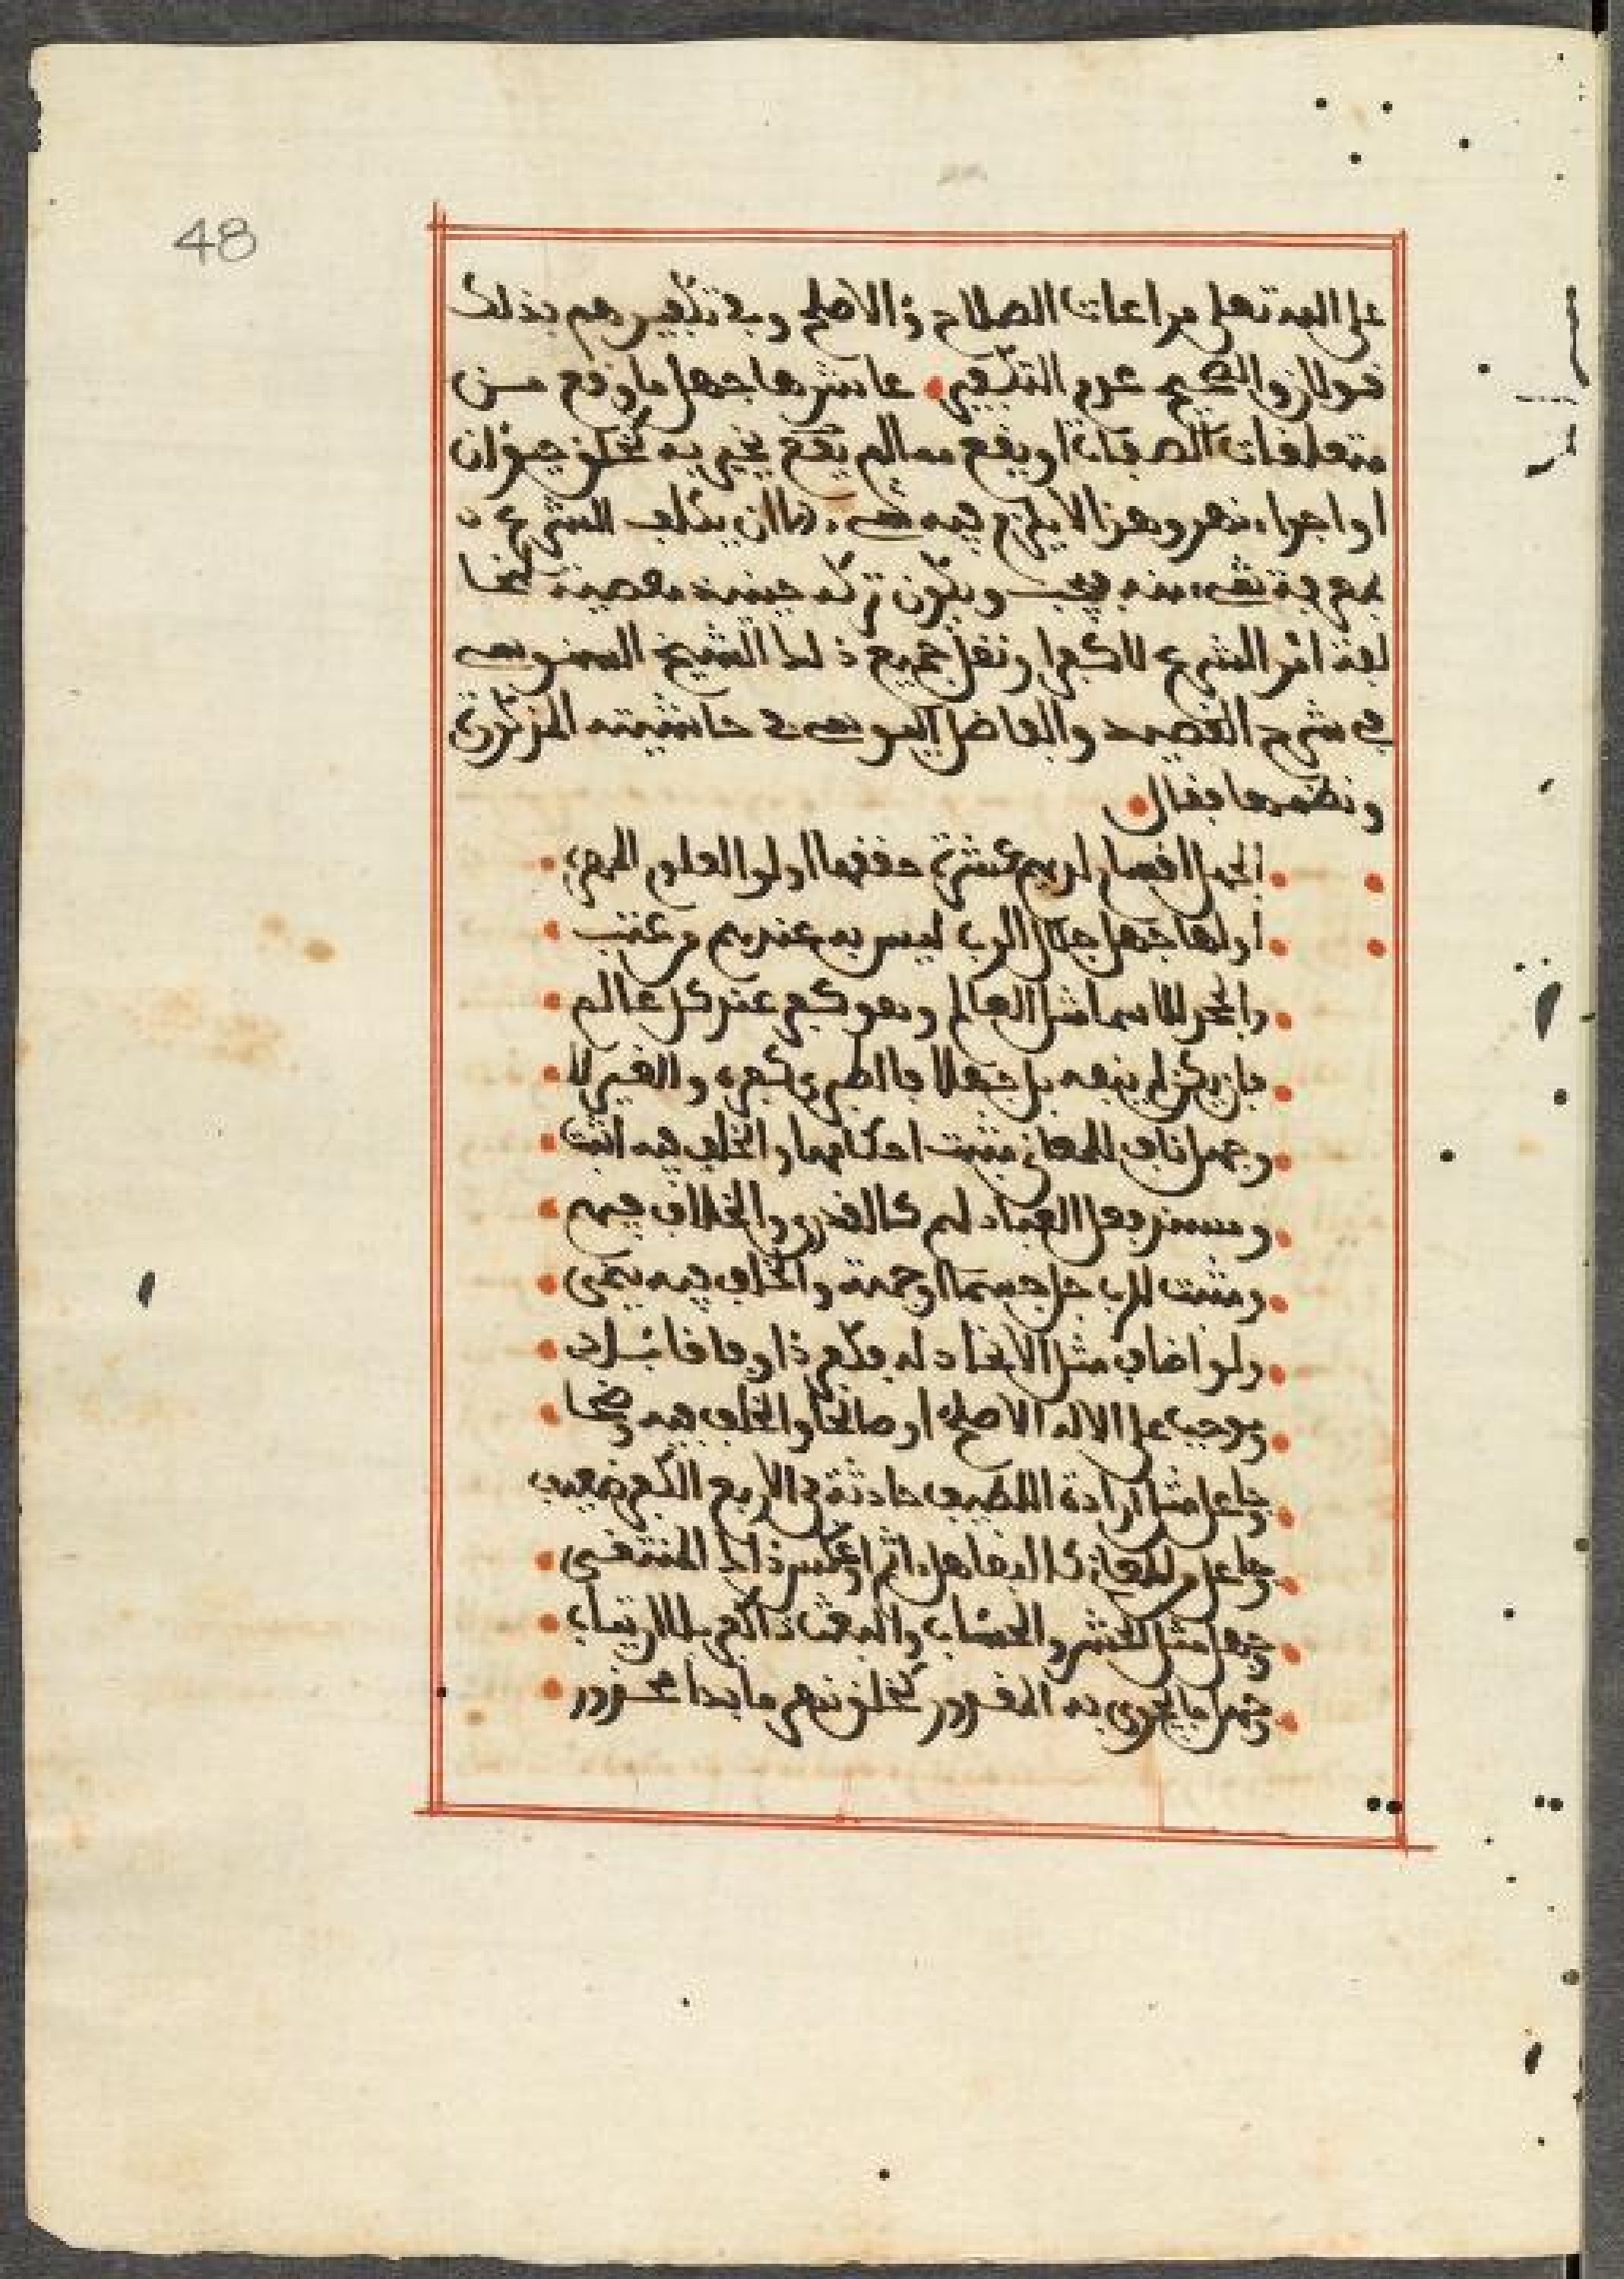 48
على الله تعلى مراعات الصلاح والاصلح وفي تكفيرهم بذلك
قولان والصحيح عدم التكفير عاشرها جهل ما وقع من
متعلقات الصفات او يقع مما لم يقع بخيريه كخلق حيوان
او اجراء نهر وهذا لا يلزم فيه شيء الا ان يكلف الشرع
بمعرفة شيء منه فيجب ويكون تركه حينئذ معصية لمخا
لفة امر الشرع لا كفرا ونقل جميع ذلك الشيخ السنوسي
في شرح القصيد والفاضل اليوسي في حاشيته المذكورة
ونظمها فقال
الجهل اقسام لديهم عشرة حققها اولو العلوم المهرة
اولها جهل جلال الرب ليس به عندهم من عتب
والجحد للاسما مثل العالم وهو كفر عند كل عالم
فان يكن لم ينفه بل جهلا فالطبري كفره والغير لا
وجهل ناف للمعاني مثبت احكامها والخلف فيه اثبت
ومسند فعل العباد لهم كالقدري والخلاف فيهم
ومثبت للرب جل جسما او جهة والخلف فيه ينمى
ولو اضاف مثل الابعاد له فكفر ذا وفاقا قابله
وموجب على الاله الاصلحا او صالحا والخلف فيه وضحا
وجاعل مثل ارادة اللطيف حادثة في الاربع الكفر ضعيف
وجاعل المعاني كالبقا هل اثم او عكس ذاك المنتقى
وجهل مثل الحشر والحساب والبعث ذا كفر بلا ارتياب
وجهل ما يجري به المقدور كخلق نهر ما بدا محذور